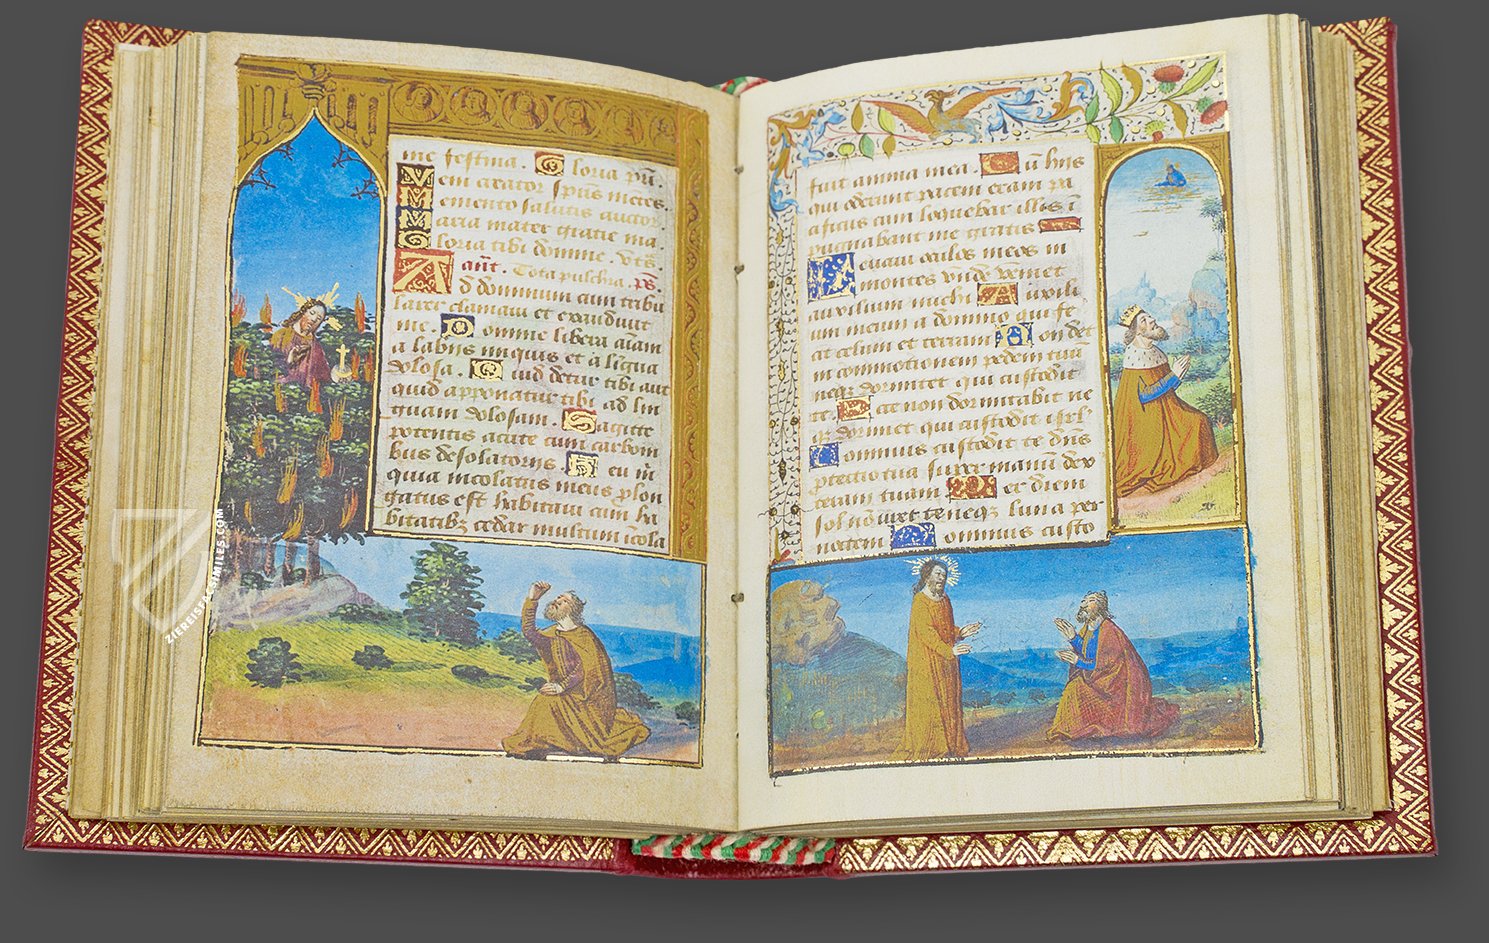 me festina. Gloria pri.
Veni creator spūs mētes.
Memento salutis auctor
Maria mater gratie ma.
Gloria tibi dōmne. Vts.
anā. Tota pulchra. ps.
Ad dominum cum tribu
larer clamaui et exaudiuit
me. Domine libera aīam
a labijs iniquis et a līgua
dolosa. Quid detur tibi aut
quid apponatur tibi ad lin
guam dolosam. Sagitte
potentis acute cum carbom
bus desolatorijs. Heu m̄
quia incolatus meus plon
gatus est habitaui cum ha
bitātibȝ cedar multum īcola
fuit anima mea. Cū hijs
qui oderunt pacem eram pa
aficus cum loquebar illos ī
pugnabant me gratis
Leuaui oculos meos in
montes vnde veniet
auxilium michi Auxili
um meum a dōmino qui fe
cit celum et terram Non det
in commotionem pedem tuū
neqȝ dormitet qui custodit
te. Ecce non dormitabit ne
qȝ dormiet qui custodit isrl'
Dominus custodit te dns
protectio tua super manū dex
teram tuam Per diem
sol nō uret te neqȝ luna per
noctem Dominus custo
ZIEREIS FACSIMILES.COM